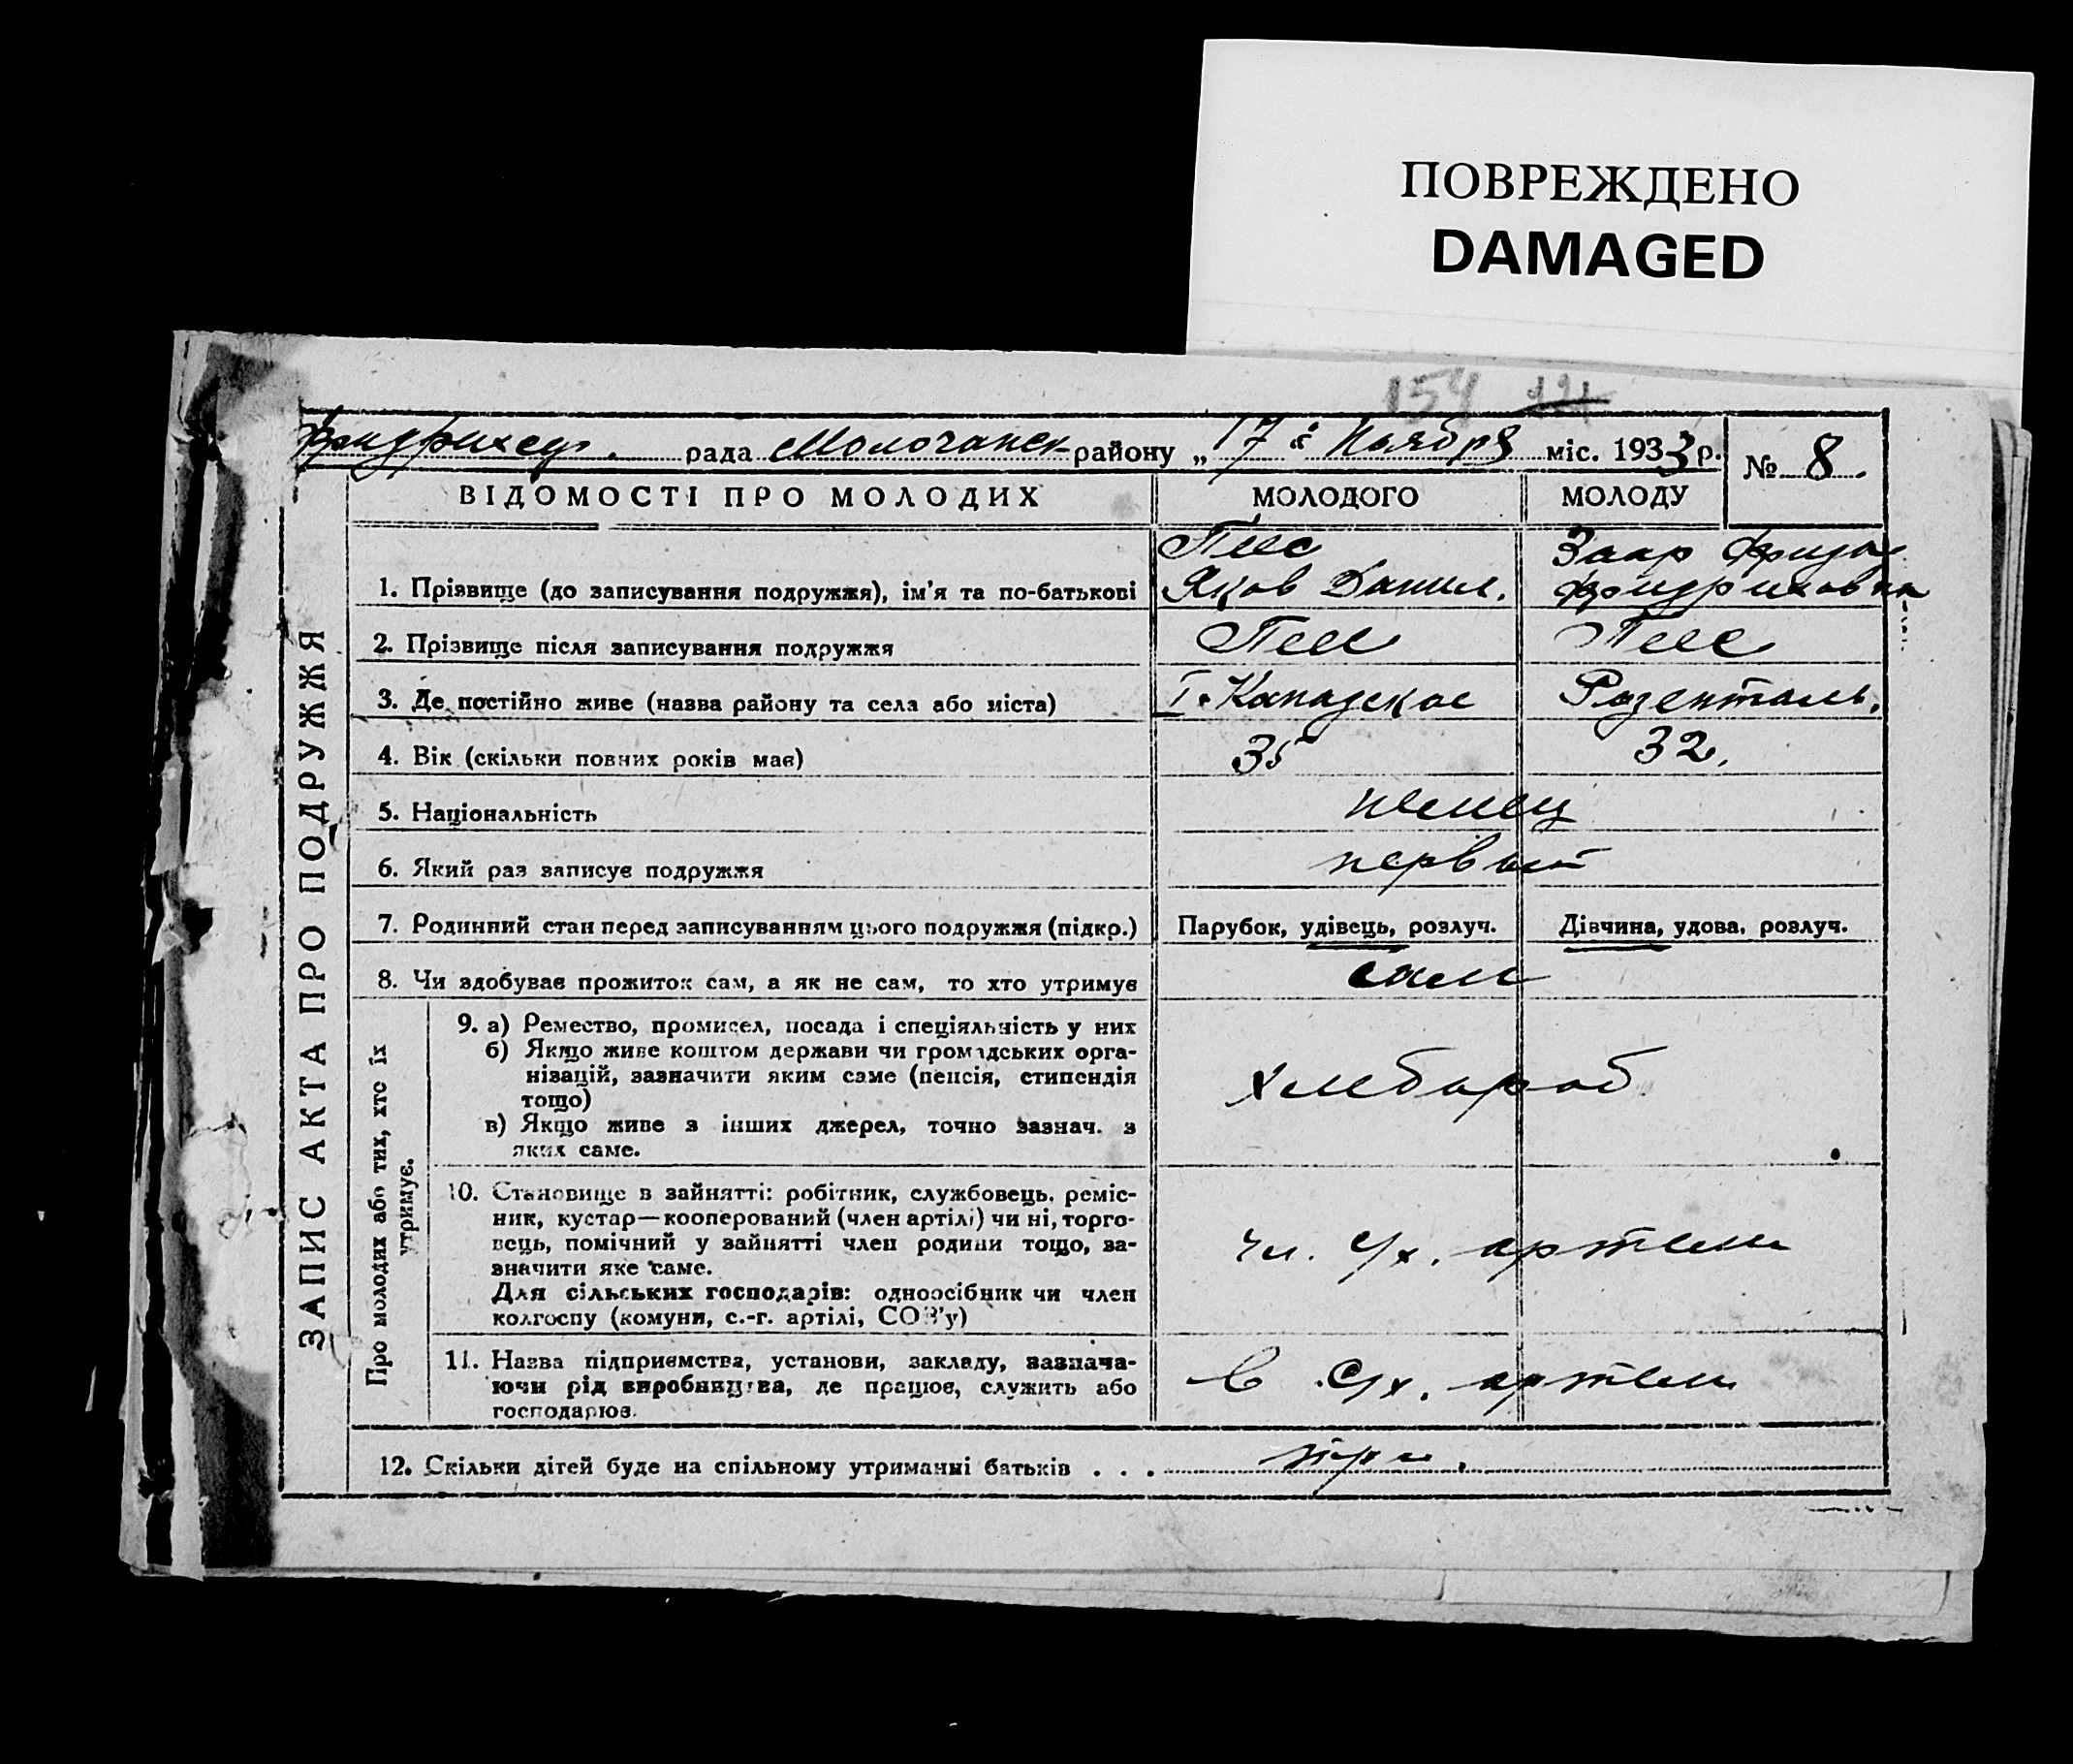 ПОВРЕЖДЕНО
DAMAGED
154
рада Молочанск району „17“ Ноября міс. 1933 р.
№ 8.
ЗАПИС АКТА ПРО ПОДРУЖЖЯ
ВІДОМОСТІ ПРО МОЛОДИХ МОЛОДОГО МОЛОДУ
1. Прізвище (до записування подружжя), ім'я та по-батькові
Яков Данил.
Фридриховна
2. Прізвище після записування подружжя
3. Де постійно живе (назва району та села або міста) Розенталь.
4. Вік (скільки повних років має) 35 32.
5. Національність немец
6. Який раз записує подружжя первый
7. Родинний стан перед записуванням цього подружжя (підкр.) Парубок, удівець, розлуч. Дівчина, удова, розлуч.
8. Чи здобуває прожиток сам, а як не сам, то хто утримує сами
Про молодих або тих, хто їх
утримує.
9. а) Ремество, промисел, посада і спеціяльність у них
б) Якщо живе коштом держави чи громадських орга-
нізацій, зазначити яким саме (пенсія, стипендія
тощо)
в) Якщо живе з інших джерел, точно зазнач. з
яких саме.
хлебороб
10. Становище в зайнятті: робітник, службовець, реміс-
ник, кустар—кооперований (член артілі) чи ні, торго-
вець, помічний у зайнятті член родини тощо, за-
значити яке саме.
Для сільських господарів: одноосібник чи член
колгоспу (комуни, с.-г. артілі, СОЗ'у)
чл. с/х. артели
11. Назва підприємства, установи, закладу, зазнача-
ючи рід виробництва, де працює, служить або
господарює.
в с/х. артели
12. Скільки дітей буде на спільному утриманні батьків . . . три.